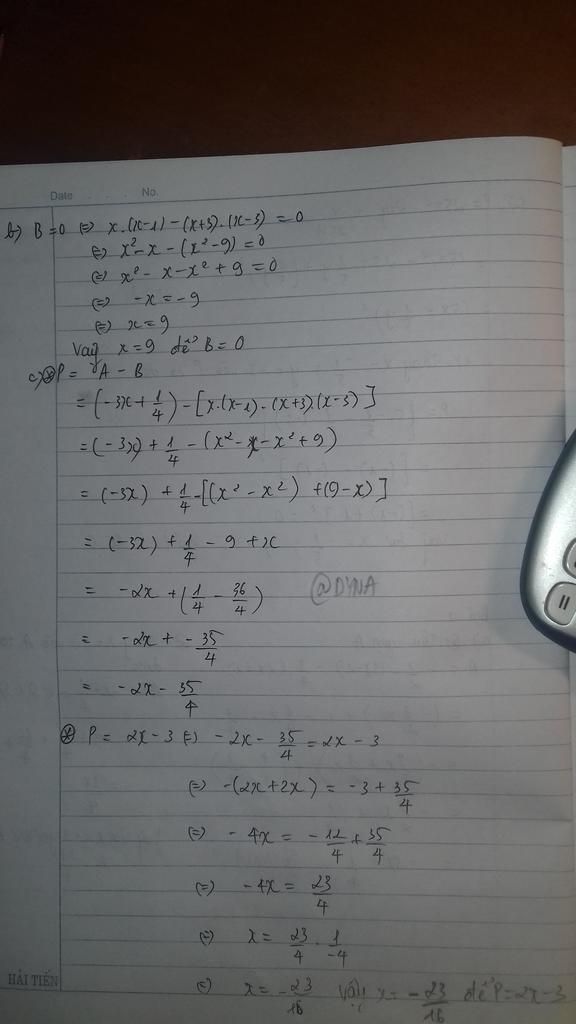 Date . . . No.
b) B=0 ⇔ x.(x-1)-(x+3).(x-3) = 0
⇔ x²-x-(x²-9)=0
⇔ x²-x-x²+9=0
⇔ -x=-9
⇔ x=9
Vậy x=9 để B=0
c) ⊛ P = A - B
= (-3x+1/4) - [x.(x-1)-(x+3).(x-3)]
= (-3x)+1/4-(x²-x-x²+9)
= (-3x)+1/4-[(x²-x²)+(9-x)]
= (-3x)+1/4-9+x
= -2x+(1/4-36/4) @DYNA
= -2x+-35/4
= -2x-35/4
⊛ P = 2x-3 ⇔ -2x-35/4=2x-3
⇔ -(2x+2x) = -3+35/4
⇔ -4x = -12/4+35/4
⇔ -4x = 23/4
⇔ x = 23/4 . 1/-4
HẢI TIẾN
⇔ x = -23/16 Vậy x = -23/16 để P=2x-3